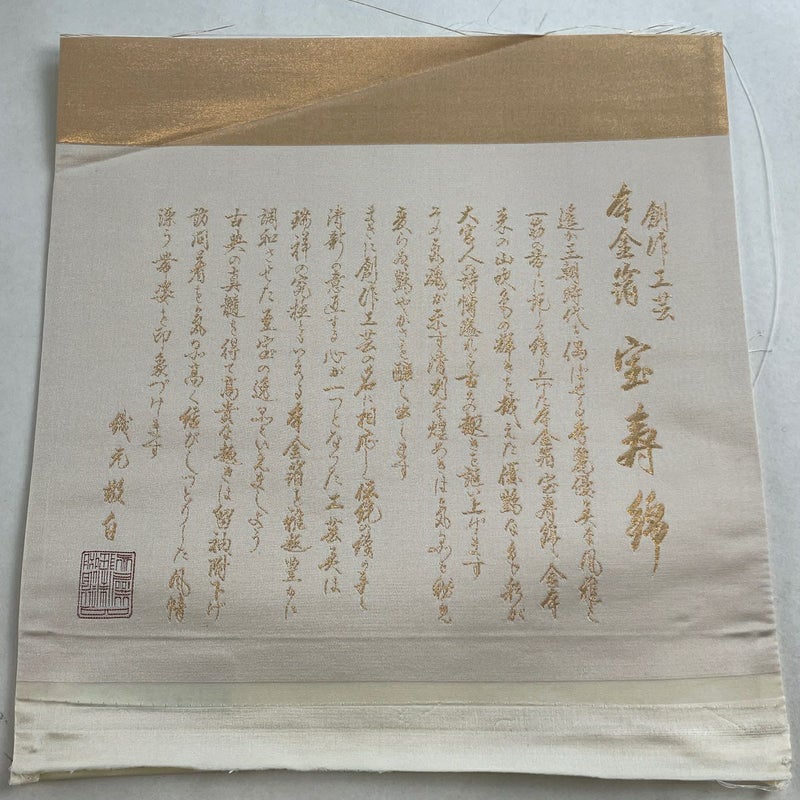 創作工芸
本金箔 宝寿錦
遙か王朝時代を偲ばせる秀麗優美な風雅を
一筋の帯に託して織り上げた本金箔宝寿錦、金台
来の山吹色の輝きを抜えた優艶な色彩が
大宮人の詩情溢れる古の趣きを謳い上げます
その気魂が示す清冽な煌めきは気品を秘め
変らぬ艶やかさを醸し出します
まさに創作工芸の名に相応し伝統の技の粋と
清新の意匠する心が一つとなった工芸美は
瑞祥の究極ともいえる本金箔を雅趣豊かに
調和させた至宝の逸品といえましょう
古典の真髄を得て高貴な趣きは留袖附下げ
訪問着を気品高く係がしっとりした風情
漂う帯姿を印象づけます
織元敬白